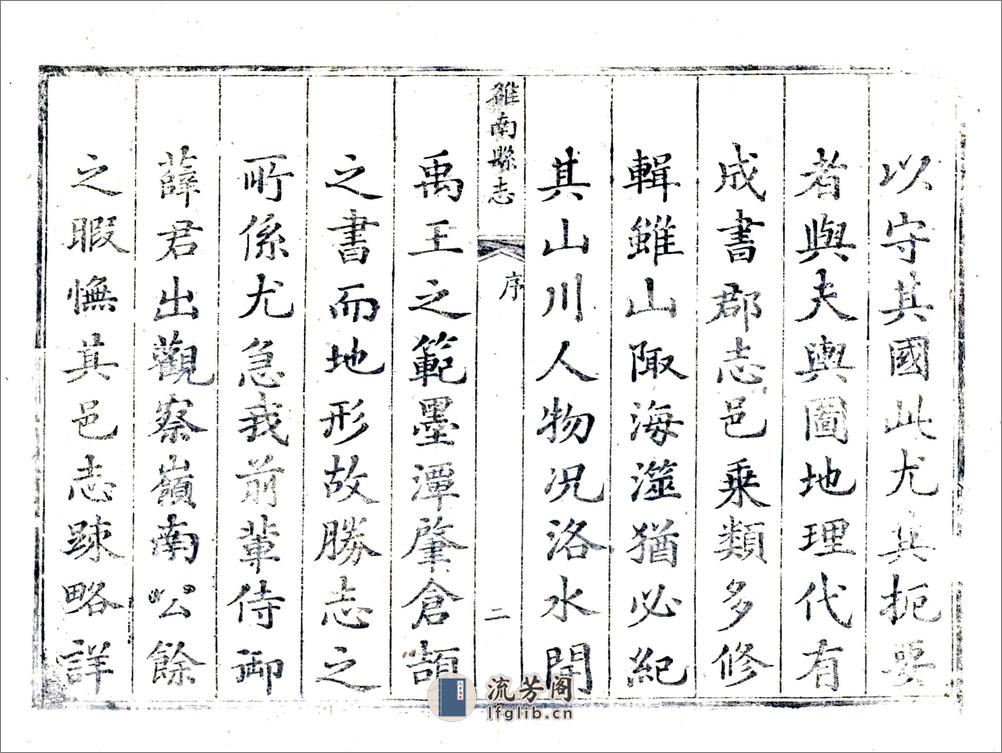 以守其國此尤其扼要
者與夫輿圖地理代有
成書郡志邑乗類多修
輯雖山陬海澨猶必紀
其山川人物况洛水開
雒南縣志
序
二
禹王之範墨潭肇倉頡
之書而地形故勝志之
所係尤急我前輩侍御
薛君出觀察嶺南公餘
之暇憮其邑志踈略詳
流芳阁
lfglib.cn